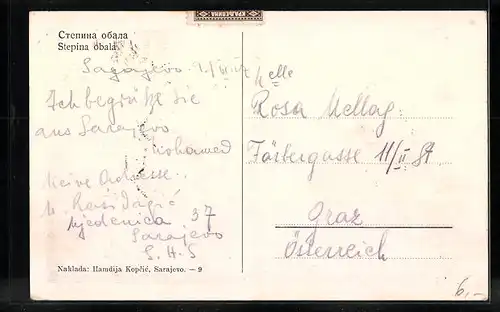 Степина обала
Stepina obala.
Sarajevo
Ich begrüße Sie
aus Sarajevo
Mohamed
Meine Adresse.
M. Rašidagić
Bjedenica 37
Sarajevo
S.H.S
Naklada: Hamdija Kopčić, Sarajevo. — 9
Melle
Rosa
Färbergasse 11/II
Graz
Österreich
6,-